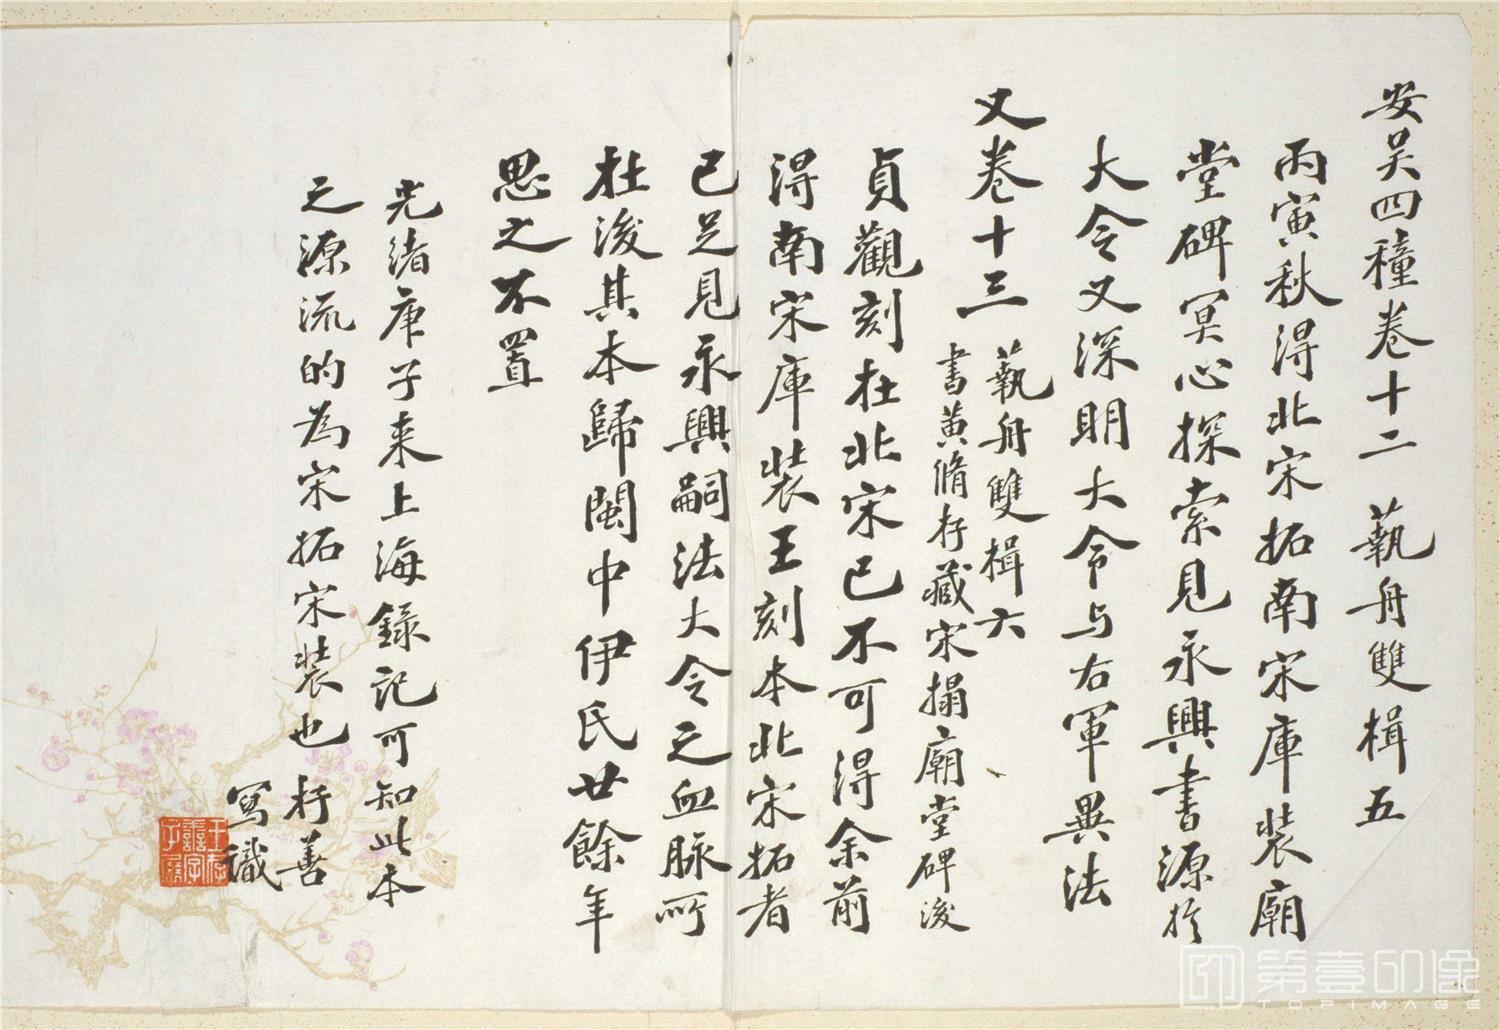 安吳四種卷十二 藝舟雙楫五
丙寅秋得北宋拓南宋庫裝廟
堂碑冥心探索見永興書源於
大令又深明大令与右軍異法
又卷十三 藝舟雙楫六
書黃脩存藏宋搨廟堂碑後
貞觀刻在北宋已不可得余前
得南宋庫裝王刻本北宋拓者
已足見永興嗣法大令之血脈所
在後其本歸閩中伊氏廿餘年
思之不置
光緒庚子來上海錄記可知此本
之源流的為宋拓宋裝也 存善
寫識
王存
善字
子展
第壹印像
TOPIMAGE